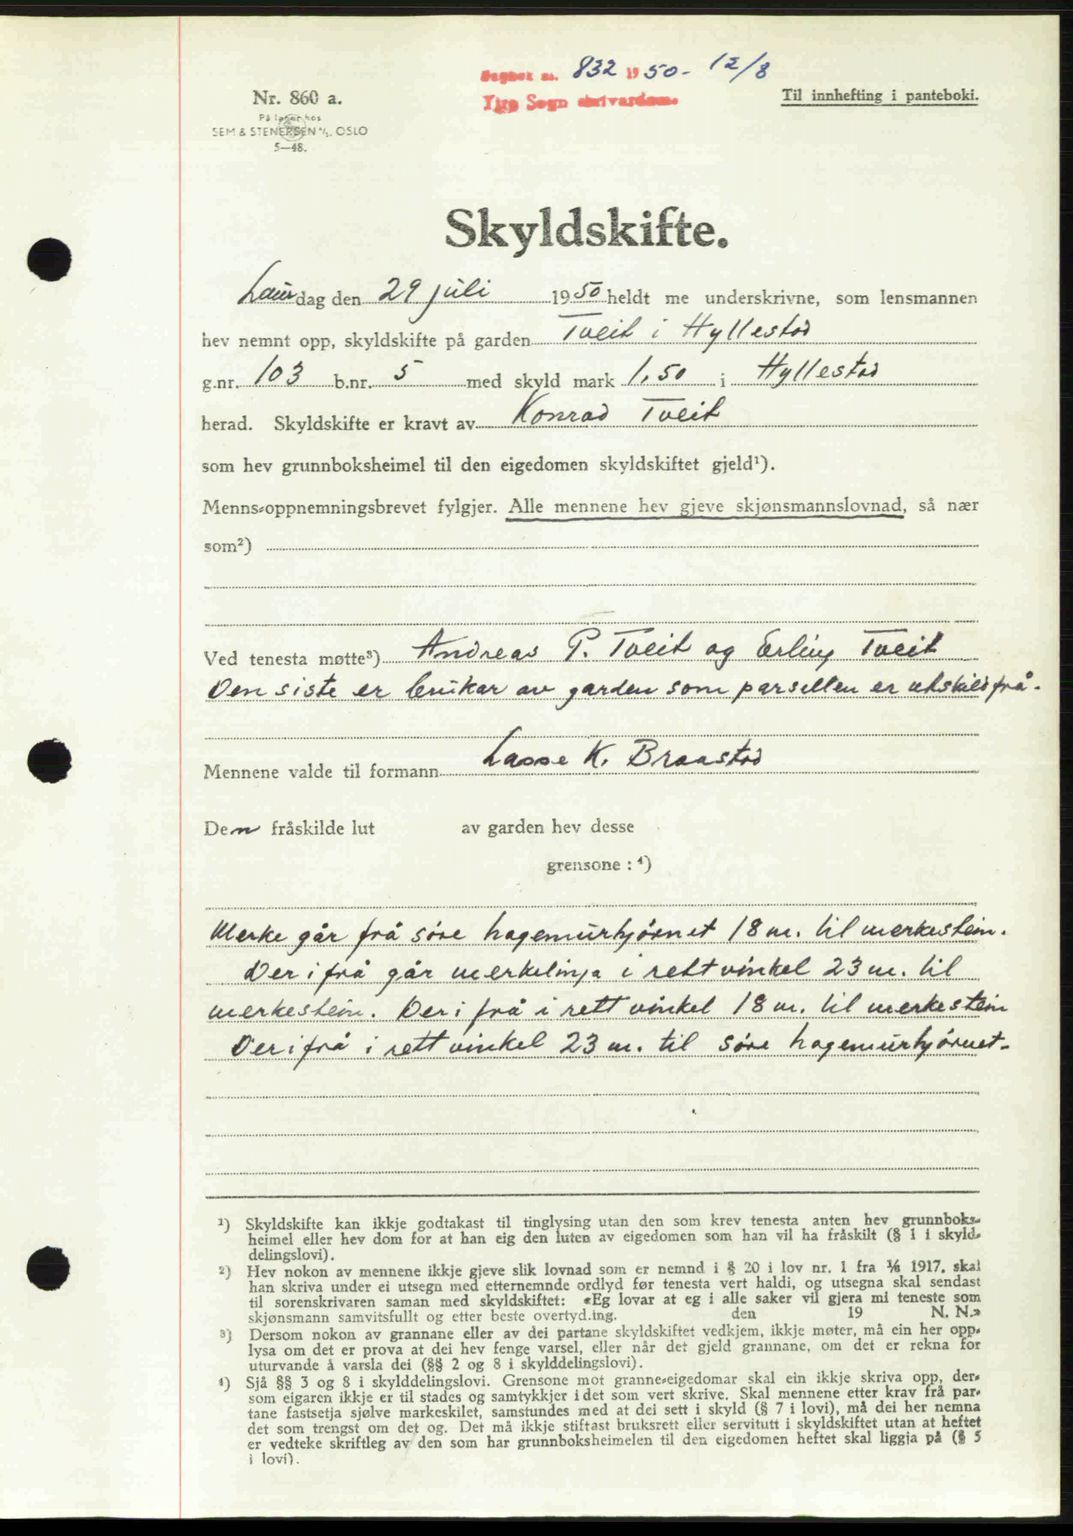 Dagbok nr. 832 1950 - 12/8
Ytre Sogn
Nr. 860 a.
På lager hos
SEM & STENERSEN A/S. OSLO
5—48.
Til innhefting i panteboki.
Skyldskifte.
Laurdag den 29 juli 1950 heldt me underskrivne, som lensmannen
hev nemnt opp, skyldskifte på garden Tveit i Hyllestad
g.nr. 103 b.nr. 5 med skyld mark 1,50 i Hyllestad
herad. Skyldskifte er kravt av Konrad Tveit
som hev grunnboksheimel til den eigedomen skyldskiftet gjeld¹).
Menns-oppnemningsbrevet fylgjer. Alle mennene hev gjeve skjønsmannslovnad, så nær
som²)
Ved tenesta møtte³) Andreas P. Tveit og Erling Tveit
Den siste er brukar av garden som parsellen er utskild frå.
Mennene valde til formann Lasse K. Braastad
Den fråskilde lut av garden hev desse
grensone : ⁴)
Merke går frå søre hagemurhjørnet 18 m. til merkestein.
Der i frå går merkelinja i rett vinkel 23 m. til
merkestein. Der i frå i rett vinkel 18 m. til merkestein
Der i frå i rett vinkel 23 m. til søre hagemurhjørnet.
¹) Skyldskifte kan ikkje godtakast til tinglysing utan den som krev tenesta anten hev grunnboks-
heimel eller hev dom for at han eig den luten av eigedomen som han vil ha fråskilt (§ 1 i skyld-
delingslovi).
²) Hev nokon av mennene ikkje gjeve slik lovnad som er nemnd i § 20 i lov nr. 1 fra 1/6 1917, skal
han skriva under ei utsegn med etternemnde ordlyd før tenesta vert haldi, og utsegna skal sendast
til sorenskrivaren saman med skyldskiftet: «Eg lovar at eg i alle saker vil gjera mi teneste som
skjønsmann samvitsfullt og etter beste overtyding. den 19 N. N.»
³) Dersom nokon av grannane eller av dei partane skyldskiftet vedkjem, ikkje møter, må ein her opp-
lysa om det er prova at dei hev fenge varsel, eller når det gjeld grannane, om det er rekna for
uturvande å varsla dei (§§ 2 og 8 i skylddelingslovi).
⁴) Sjå §§ 3 og 8 i skylddelingslovi. Grensone mot granne-eigedomar skal ein ikkje skriva opp, der-
som eigaren ikkje er til stades og samtykkjer i det som vert skrive. Skal mennene etter krav frå par-
tane fastsetja sjølve markeskilet, samstundes med at dei sett i skyld (§ 7 i lovi), må dei her nemna
det som trengst om det og. Det må ikkje stiftast bruksrett eller servitutt i skyldskiftet utan at heftet
er vedteke skriftleg av den som har grunnboksheimelen til den eigedomen heftet skal liggja på (§ 5
i lovi).